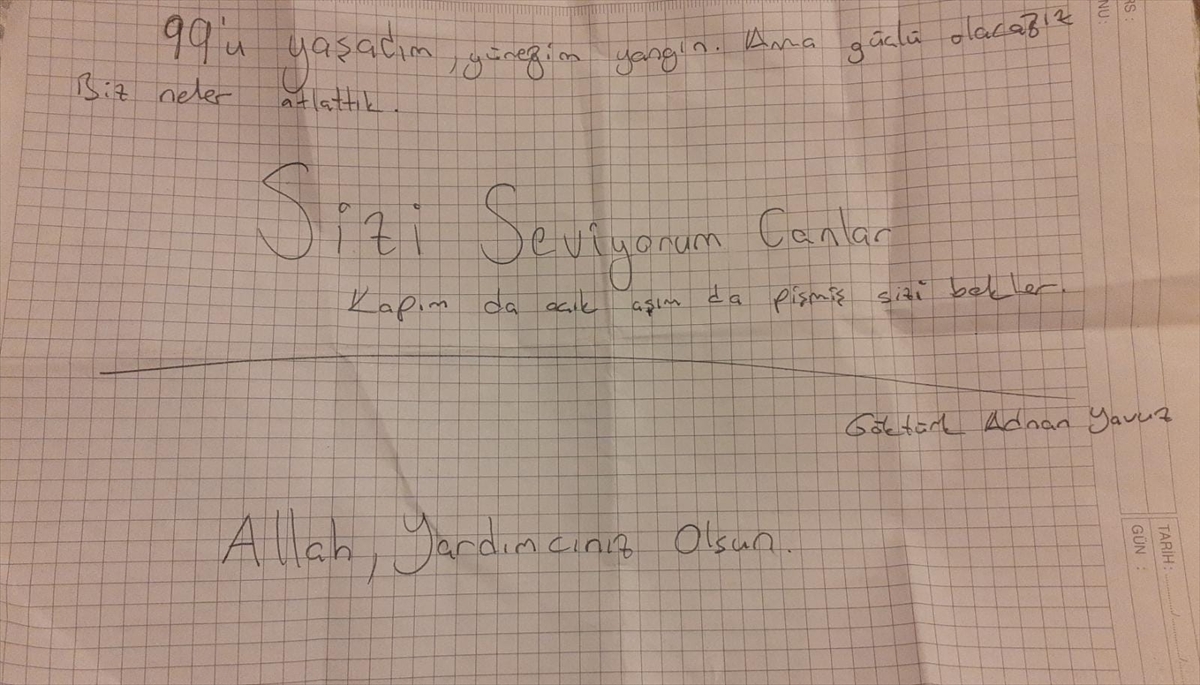 99'u yaşadım, yüreğim yangın. Ama güçlü olacağız
Biz neler atlattık.
Sizi Seviyorum Canlar
Kapım da açık aşım da pişmiş sizi bekler.
Göktürk Adnan Yavuz
Allah, Yardımcınız Olsun.
TARİH:
GÜN :